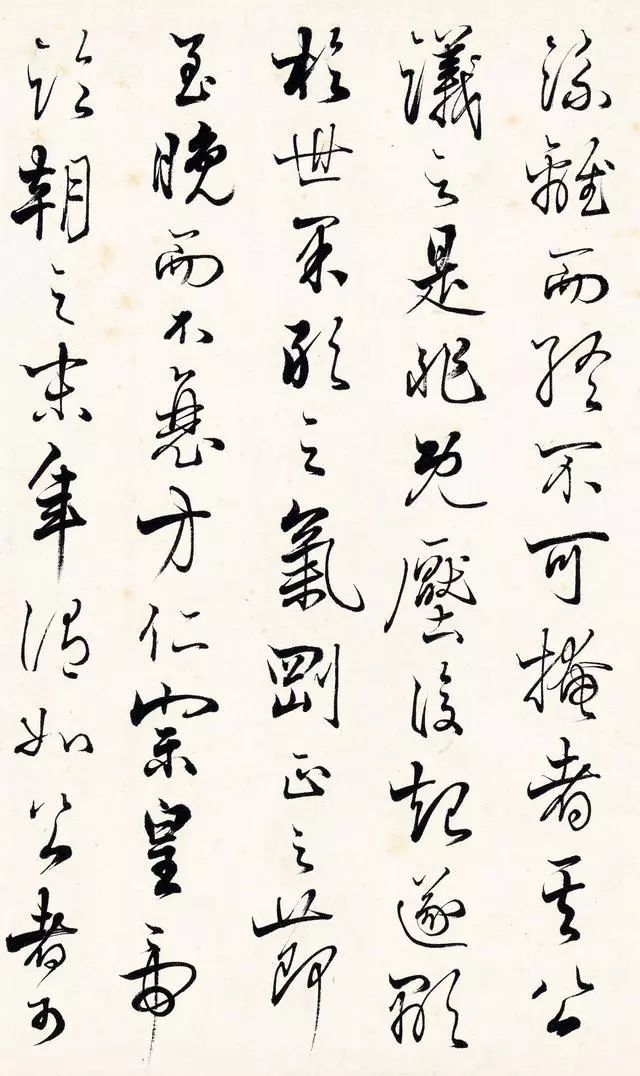 流離而終不可掩者其公
議之是非既壓復起遂顯
於世果敢之氣剛正之節
至晚而不衰方仁宗皇帝
臨朝之末年謂如公者可